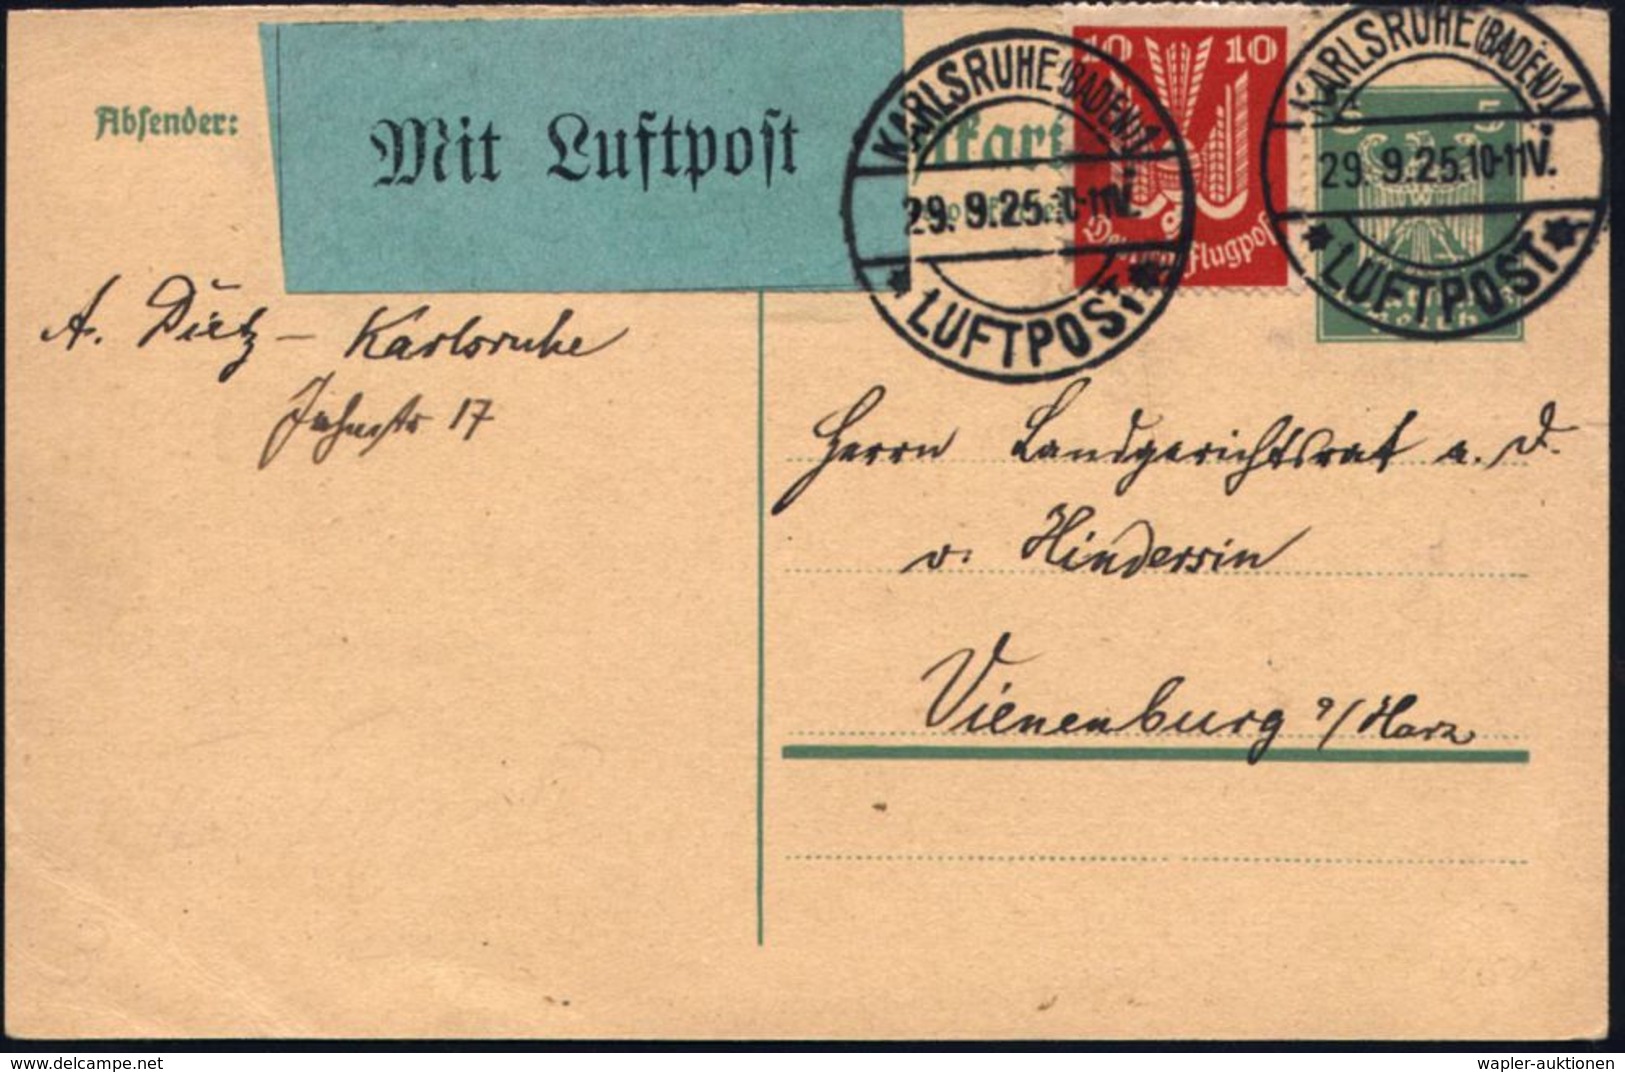 Absender:
Mit Luftpost
KARLSRUHE (BADEN) 1
29. 9. 25. 10-11V.
* LUFTPOST *
10 10
Deutsche Flugpost
KARLSRUHE (BADEN) 1
29. 9. 25. 10-11V.
* LUFTPOST *
5
Reich
A. Dietz – Karlsruhe
Jahnstr 17
Herrn Landgerichtsrat a. D.
v. Hindersin
Vienenburg a/Harz
www.delcampe.net
wapler-auktionen